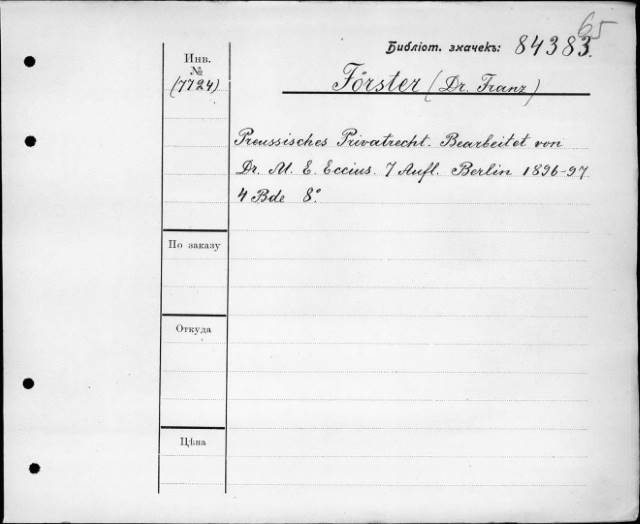 65
Библіот. значекъ: 84383.
Инв.
№
(7724)
Förster (Dr. Franz)
Preussisches Privatrecht. Bearbeitet von
Dr. M. E. Eccius. 7 Aufl. Berlin 1896-97
4 Bde 8°.
По заказу
Откуда
Цѣна